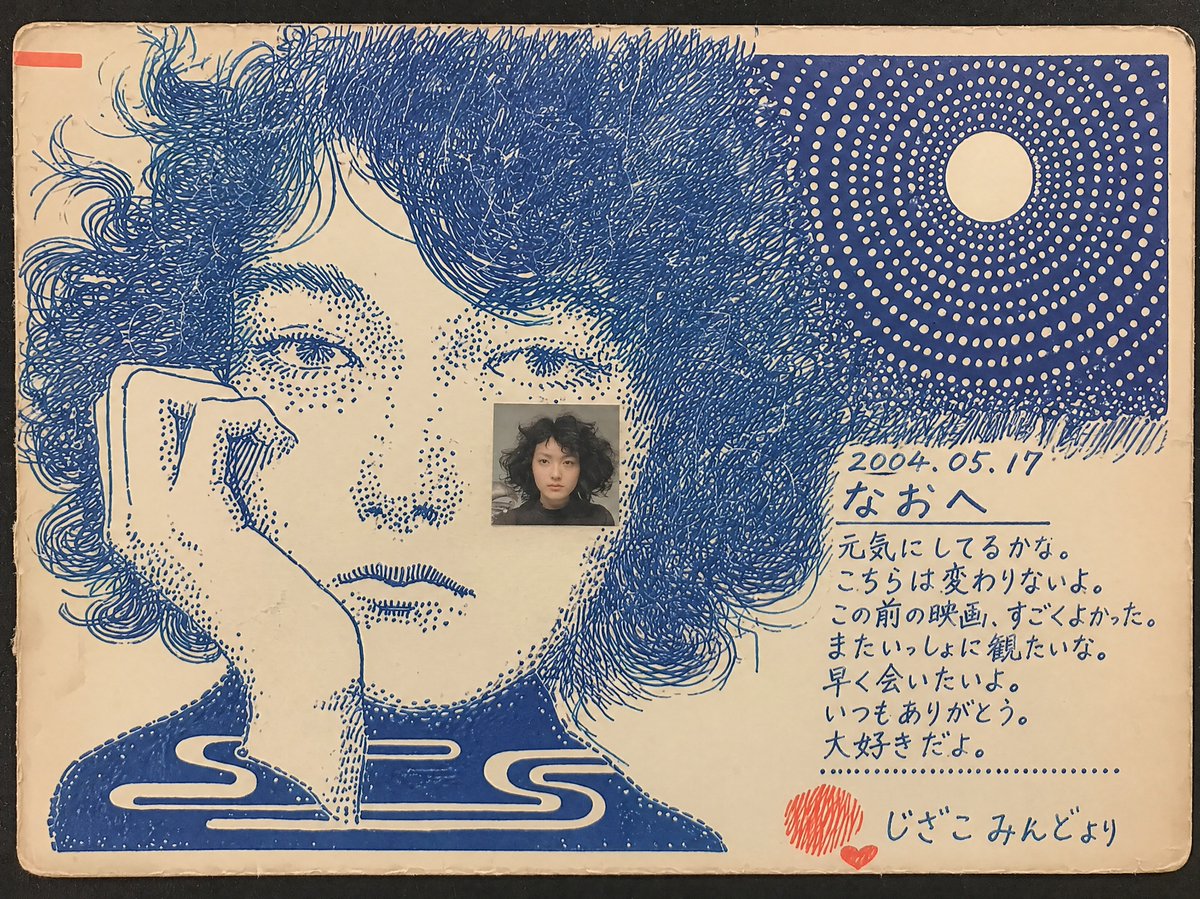 2004.05.17
なおへ
元気にしてるかな。
こちらは変わりないよ。
この前の映画、すごくよかった。
またいっしょに観たいな。
早く会いたいよ。
いつもありがとう。
大好きだよ。
じざこ みんどより